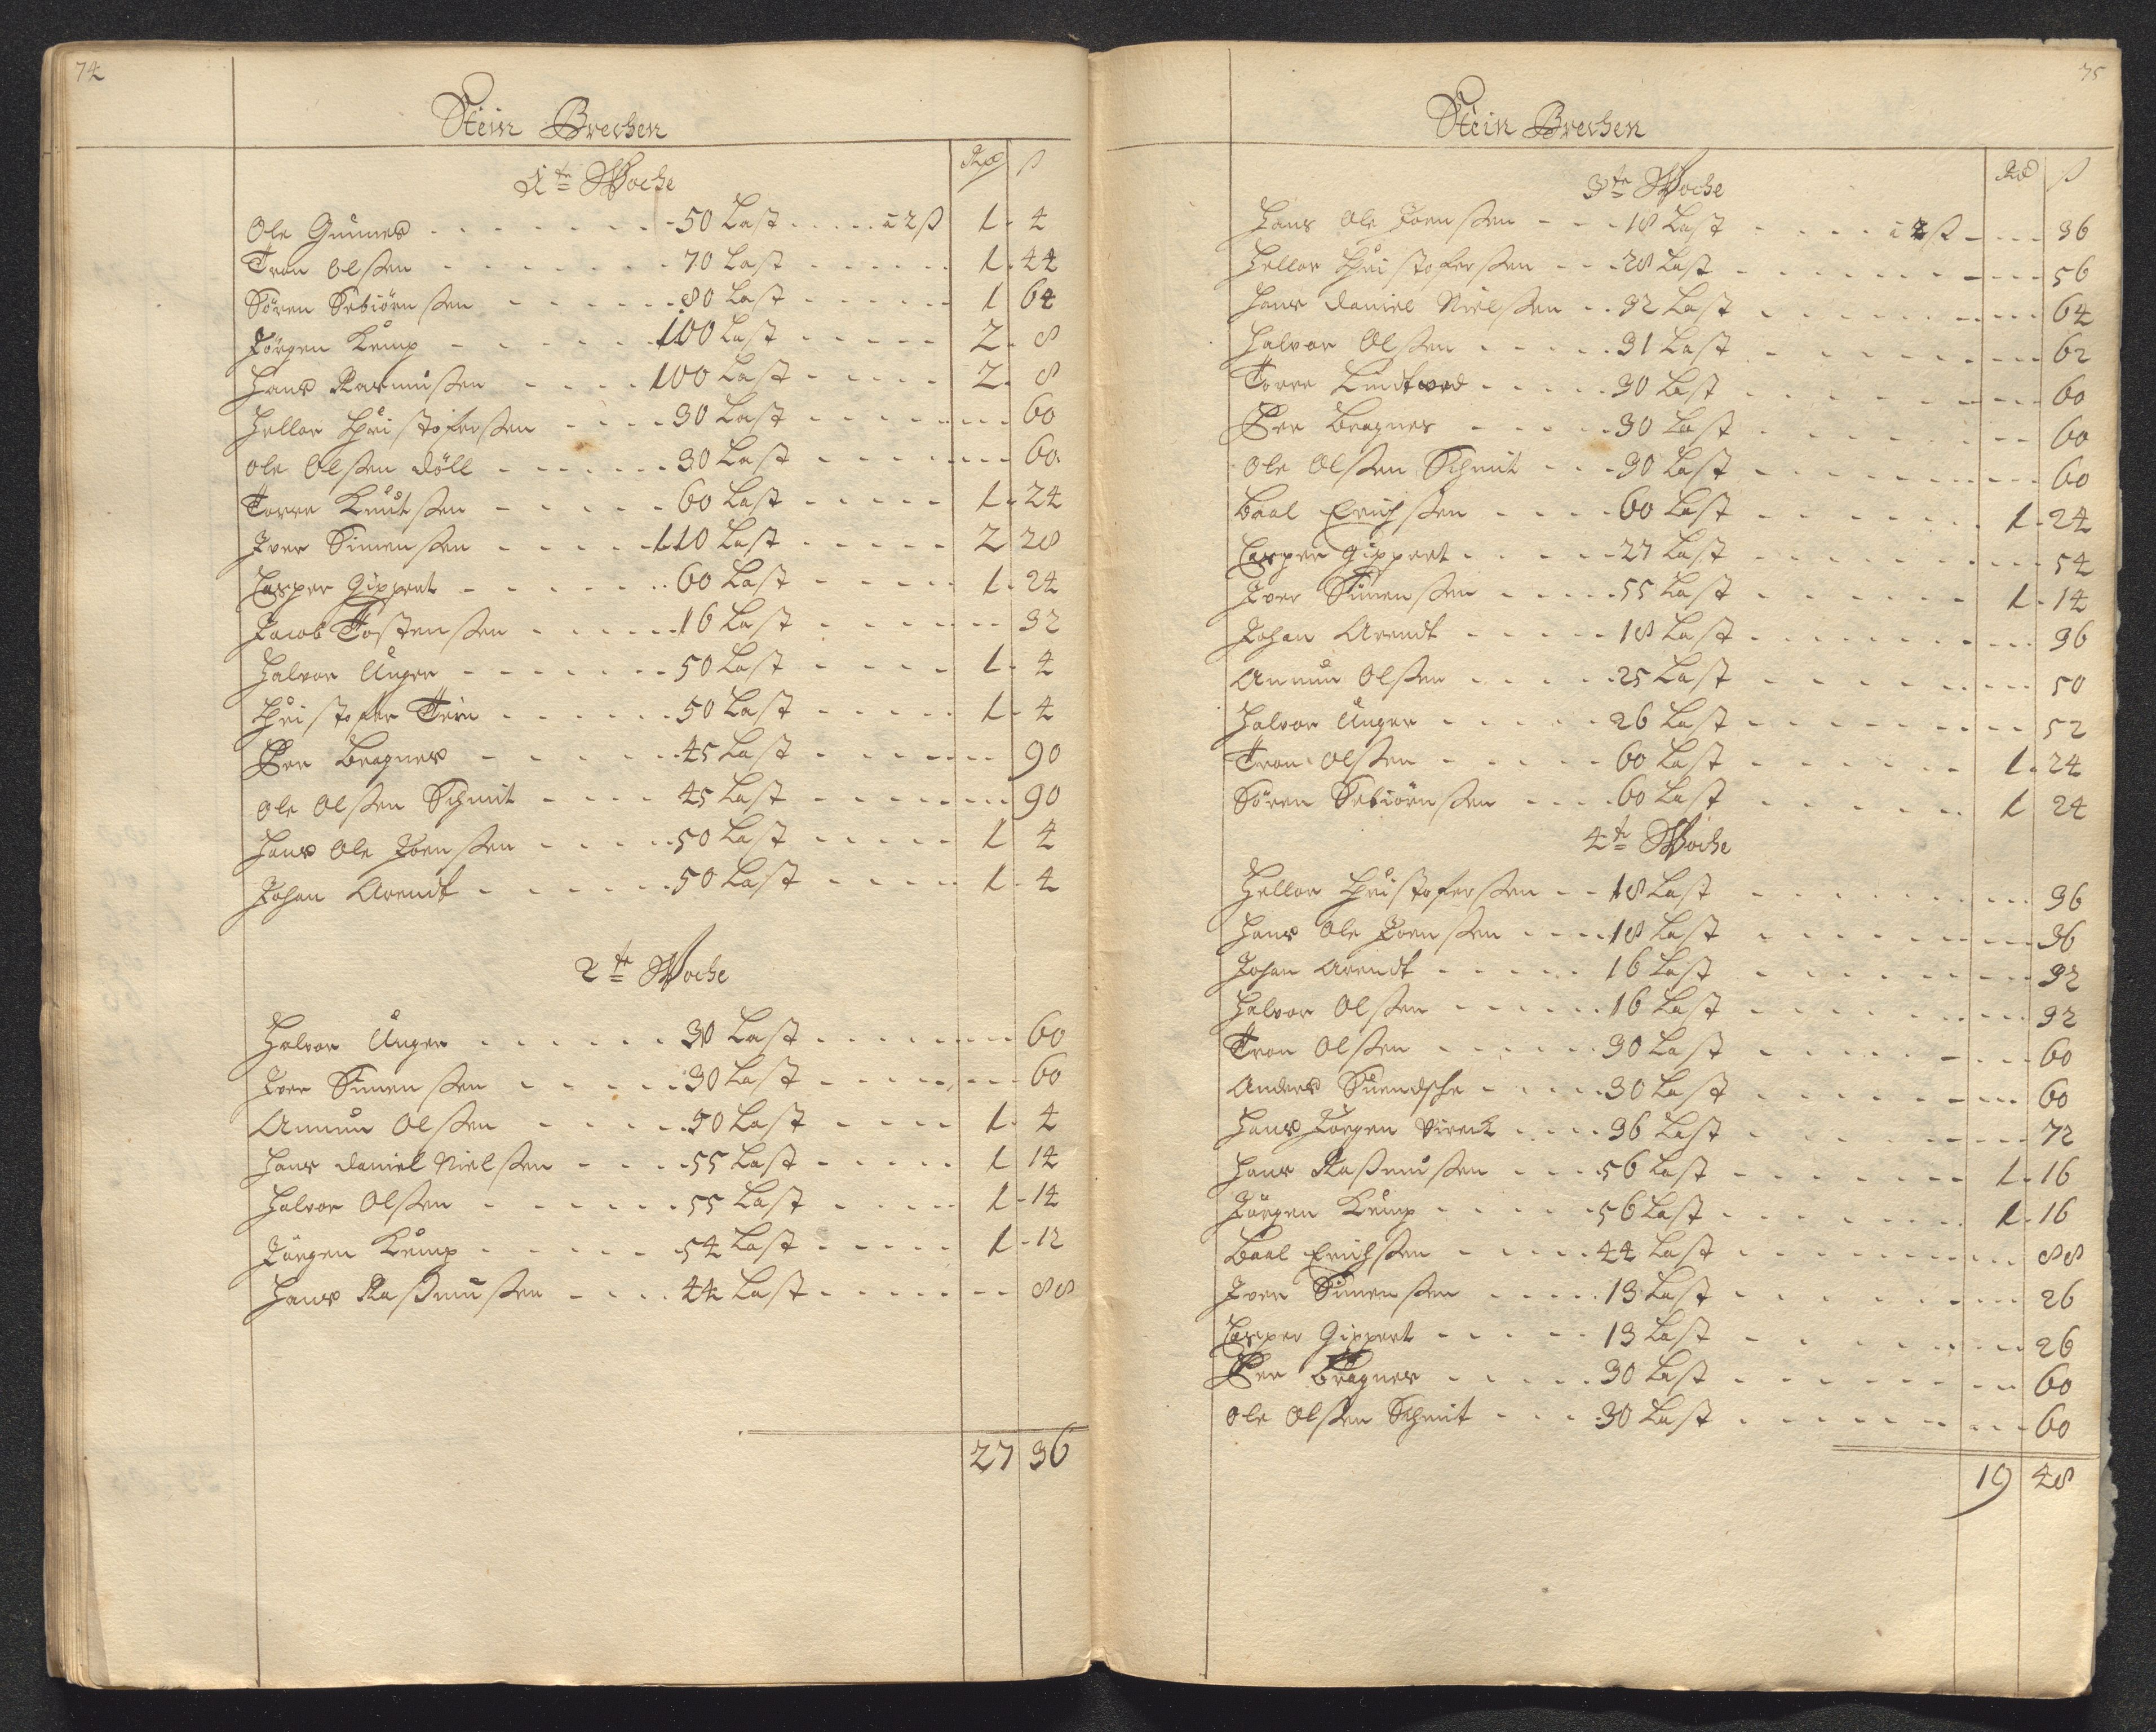 74
Stein Brechen
1te Woche
Rdr ß
Ole Gunnes 50 Last à 2 ß 1 4
Tron Olßen 70 Last 1 44
Sören Sebiörnßen 80 Last 1 64
Jörgen Kemp 100 Last 2 8
Hans Rasmußen 100 Last 2 8
Hellor Christoferßen 30 Last 60
Ole Olßen Döll 30 Last 60
Torre Knutßen 60 Last 1 24
Iver Simenßen 110 Last 2 28
Casper Gippert 60 Last 1 24
Jacob Tostenßen 16 Last 32
Halvor Unger 50 Last 1 4
Christofer Tein 50 Last 1 4
Per Bragnes 45 Last 90
Ole Olßen Schmit 45 Last 90
Hans Ole Joenßen 50 Last 1 4
Johan Arendt 50 Last 1 4
2te Woche
Halvor Unger 30 Last 60
Iver Simenßen 30 Last 60
Amun Olßen 50 Last 1 4
Hans Daniel Nielßen 55 Last 1 14
Halvor Olßen 55 Last 1 14
Jörgen Kemp 54 Last 1 12
Hans Raßmußen 44 Last 88
27 36
75
Stein Brechen
3te Woche
Rdr ß
Hans Ole Joenßen 18 Last à 2 ß 36
Hellor Christoferßen 28 Last 56
Hans Daniel Nielßen 32 Last 64
Halvor Olßen 31 Last 62
Torre 30 Last 60
Per Bragnes 30 Last 60
Ole Olßen Schmit 30 Last 60
Baal Erichßen 60 Last 1 24
Casper Gippert 27 Last 54
Iver Simenßen 55 Last 1 14
Johan Arendt 18 Last 36
Amun Olßen 25 Last 50
Halvor Unger 26 Last 52
Tron Olßen 60 Last 1 24
Sören Sebiörnßen 60 Last 1 24
4te Woche
Hellor Christoferßen 18 Last 36
Hans Ole Joenßen 18 Last 36
Johan Arendt 16 Last 32
Halvor Olßen 16 Last 32
Tron Olßen 30 Last 60
Anders Suendsche 30 Last 60
Hans Jörgen Vireck 36 Last 72
Hans Raßmußen 56 Last 1 16
Jörgen Kemp 56 Last 1 16
Baal Erichßen 44 Last 88
Iver Simenßen 13 Last 26
Casper Gippert 13 Last 26
Per Bragnes 30 Last 60
Ole Olßen Schmit 30 Last 60
19 48